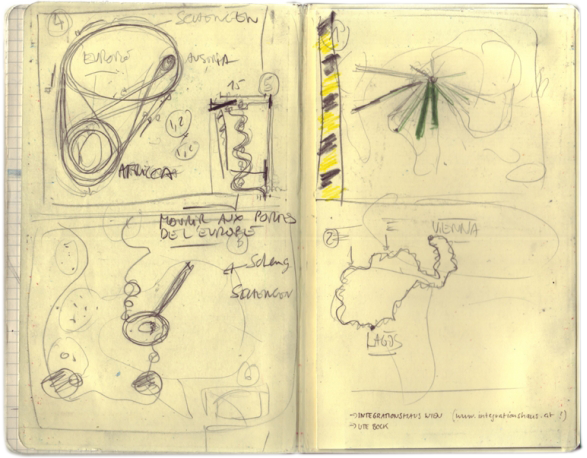 4
SCHENGEN
EUROPE
AUSTRIA
15
5
1,2
1,2
AFRICA
MOURIR AUX PORTES
DE L'EUROPE
Scheng
SCHENGEN
6
1
2
E
VIENNA
LAGOS
→ INTEGRATIONSHAUS WIEN (www.integrationshaus.at ?)
→ UTE BOCK